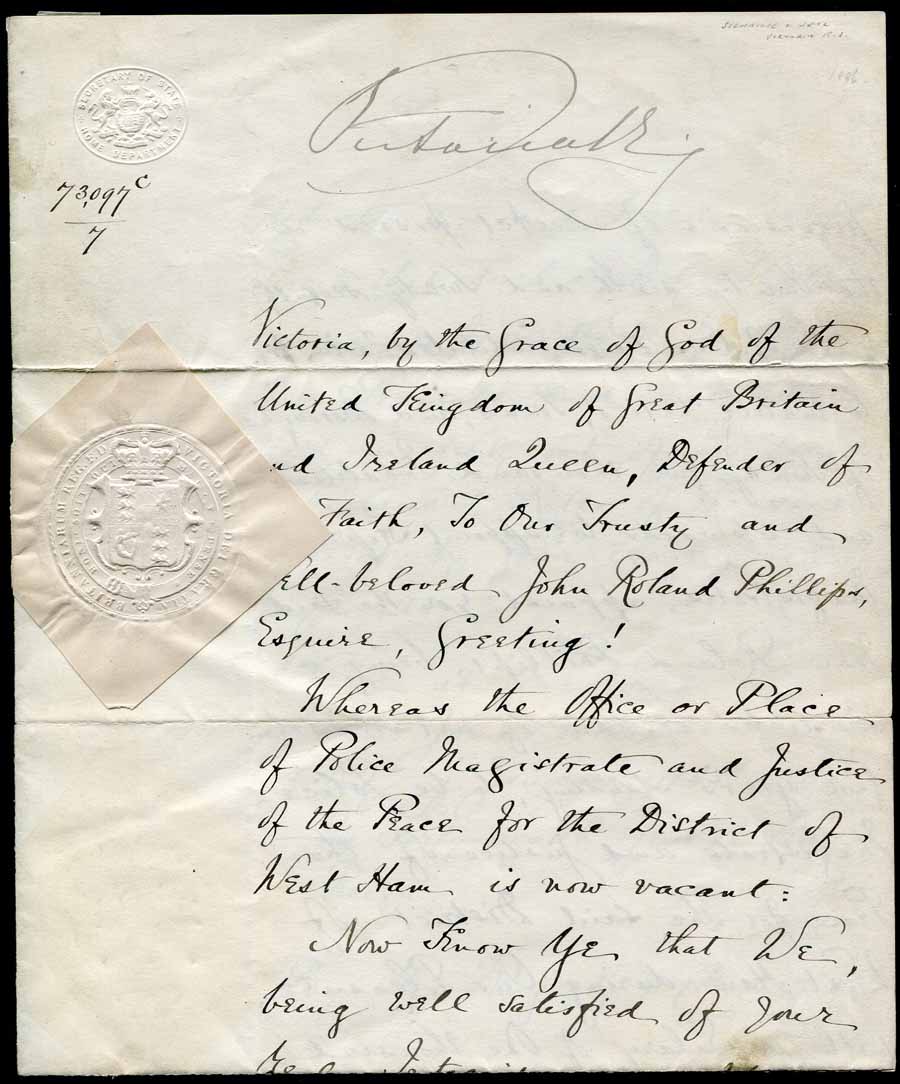 SECRETARY OF STATE
HOME DEPARTMENT
Victoria R I
73,097 c
7
VICTORIA DEI GRATIA BRITANNIARUM REGINA
Victoria, by the Grace of God of the
United Kingdom of Great Britain
nd Ireland Queen, Defender of
Faith, To Our Trusty and
ell-beloved John Roland Phillips,
Esquire, Greeting!
Whereas the Office or Place
of Police Magistrate and Justice
of the Peace for the District of
West Ham is now vacant:
Now Know Ye that We,
being well satisfied of your